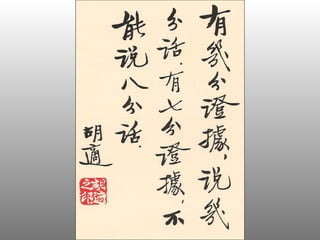 有幾分證據，說幾
分話．有七分證據，不
能说八分話．
胡適
胡適之印